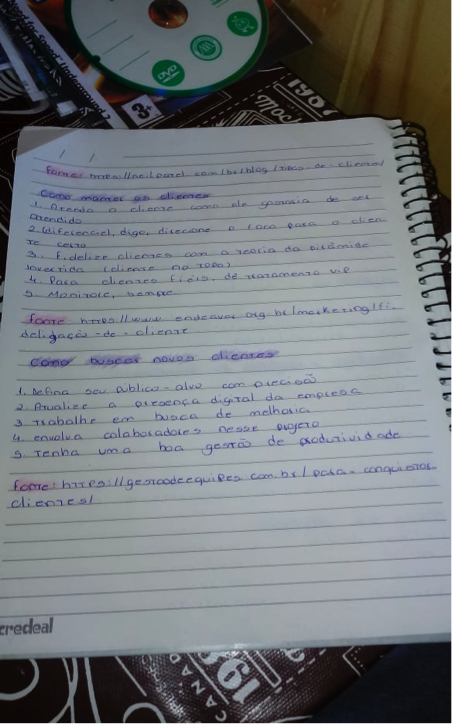 DVD
3+
1981
Moc
/ /
fonte: https://neilpatel.com/br/blog/tipos-de-cliente/
Como manter os clientes
1. Atenda o cliente como ele gostaria de ser
atendido
2. (diferencie), digo, direcione o foco para o clien
te certo
3. Fidelize clientes com a teoria da pirâmide
invertida (cliente no topo)
4. Para clientes fiéis, de tratamento vip
5. Monitore, sempre
fonte https://www endeavor.org.br/marketing/fi
deligação-de-cliente
Como buscar novos clientes
1. Defina seu público-alvo com precisão
2 Atualize a presença digital da empresa
3 trabalhe em busca de melhoria
4. envolva colaboradores nesse projeto
5. tenha uma boa gestão de produtividade
fonte: https://gestaodeequipes.com.br/para-conquistar-
clientes/
credeal
CANA